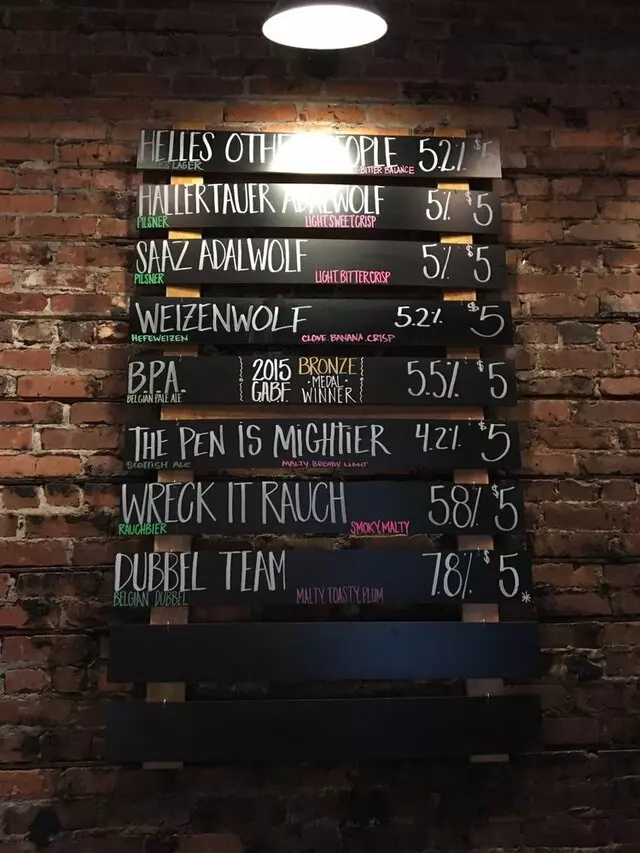 HELLES OTH OPLE 5.2% $5
LAGER BITTER BALANCE
HALLERTAUER ADALWOLF 5% $5
PILSNER LIGHT.SWEET.CRISP
SAAZ ADALWOLF 5% $5
PILSNER LIGHT.BITTER.CRISP
WEIZENWOLF 5.2% $5
HEFEWEIZEN CLOVE.BANANA.CRISP
B.P.A. 2015 GABF BRONZE MEDAL WINNER 5.5% $5
BELGIAN PALE ALE
THE PEN IS MiGHTiER 4.2% $5
SCOTTISH ALE MALTY.BREADY.LIGHT
WRECK IT RAUCH 5.8% $5
RAUCHBIER SMOKY.MALTY
DUBBEL TEAM 7.8% $5*
BELGIAN DUBBEL MALTY.TOASTY.PLUM